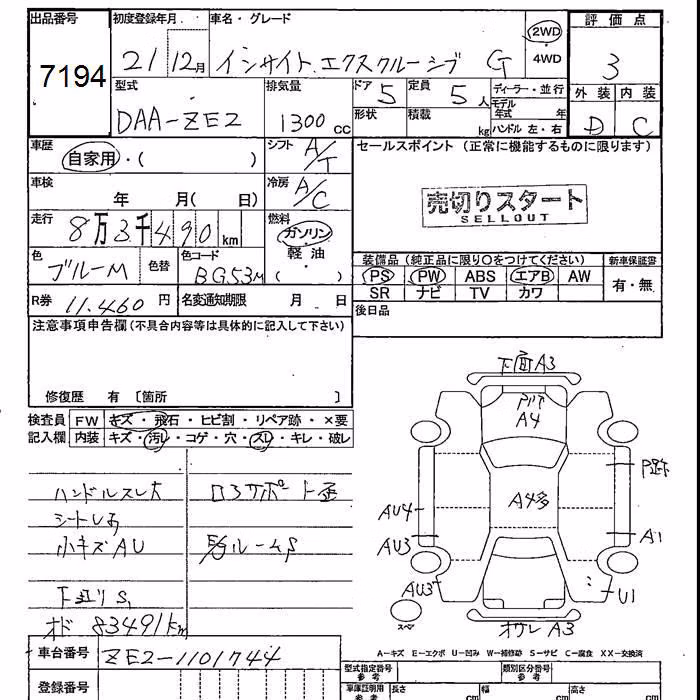 出品番号 7194
初度登録年月 21 12月
車名・グレード インサイト エクスクルーシブ G
2WD
4WD
評価点 3
外装 内装
D C
型式 DAA-ZE2
排気量 1300 cc
ドア 5 定員 5 人
形状 積載 kg
ディーラー・並行
モデル年式 年
ハンドル 左・右
車歴 自家用・( )
シフト A/T
セールスポイント (正常に機能するものに限ります)
売切りスタート
SELLOUT
車検 年 月( 日)
冷房 A/C
走行 8万3千490km
燃料 ガソリン
軽油
( )
色 ブルーM 色替 色コード BG53M
装備品 (純正品に限り○をつけてください) 新車保証書
PS PW ABS エアB AW 有・無
SR ナビ TV カワ
R券 11,460 円 名変通知期限 月 日
後日品
注意事項申告欄(不具合内容等は具体的に記入して下さい)
修復歴 有 〔箇所 〕
検査員記入欄 FW キズ・飛石・ヒビ割・リペア跡・×要
内装 キズ・汚レ・コゲ・穴・スレ・キレ・破レ
ハンドルスレ大
小キズAU
下廻りS
オド 83491km
ロアサポート歪
下面A3
A4
A4多
AU4
AU3
AU3
P跡
A1
U1
スペ
オサレ A3
A－キズ E－エクボ U－凹み W－補修跡 S－サビ C－腐食 XX－交換済
車台番号 ZE2-1101744
登録番号
型式指定番号 参考 類別区分番号 参考
車庫証明用 参考 長さ cm 幅 cm 高さ cm